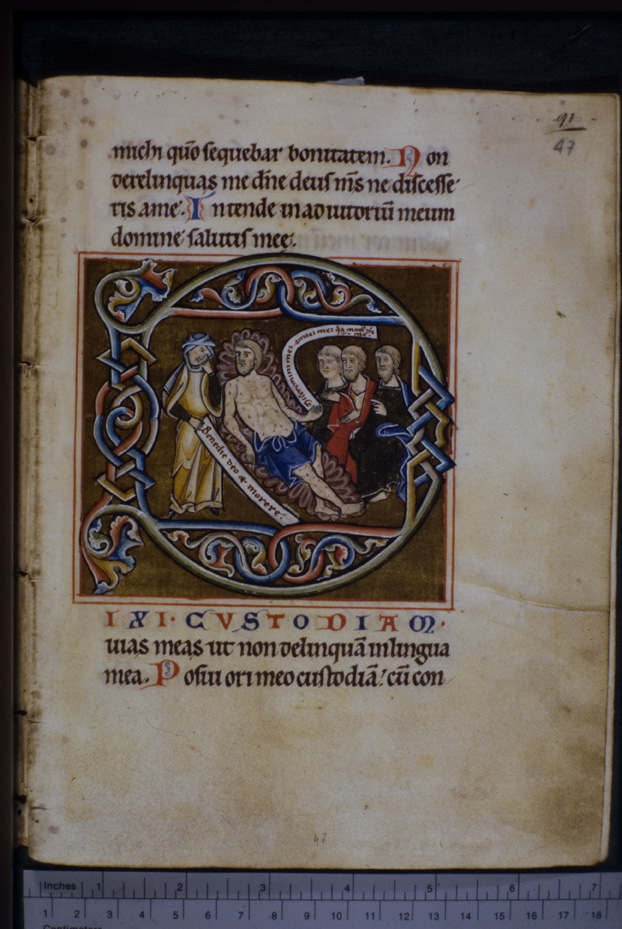 91
47
michi qm̄o sequebar bonitatem. Non
derelinquas me dn̄e deus m̄s ne discesse
ris a me. Intende in adiutoriū meum
domine salutis mee.
miseremini mei amici mei
Benedic deo & morere.
D
IXI · CVSTODIAM ·
uias meas ut non delinquā in lingua
mea. Posui ori meo custodiā: cū con
47
Inches 1 2 3 4 5 6 7
1 2 3 4 5 6 7 8 9 10 11 12 13 14 15 16 17 18
Centimetres